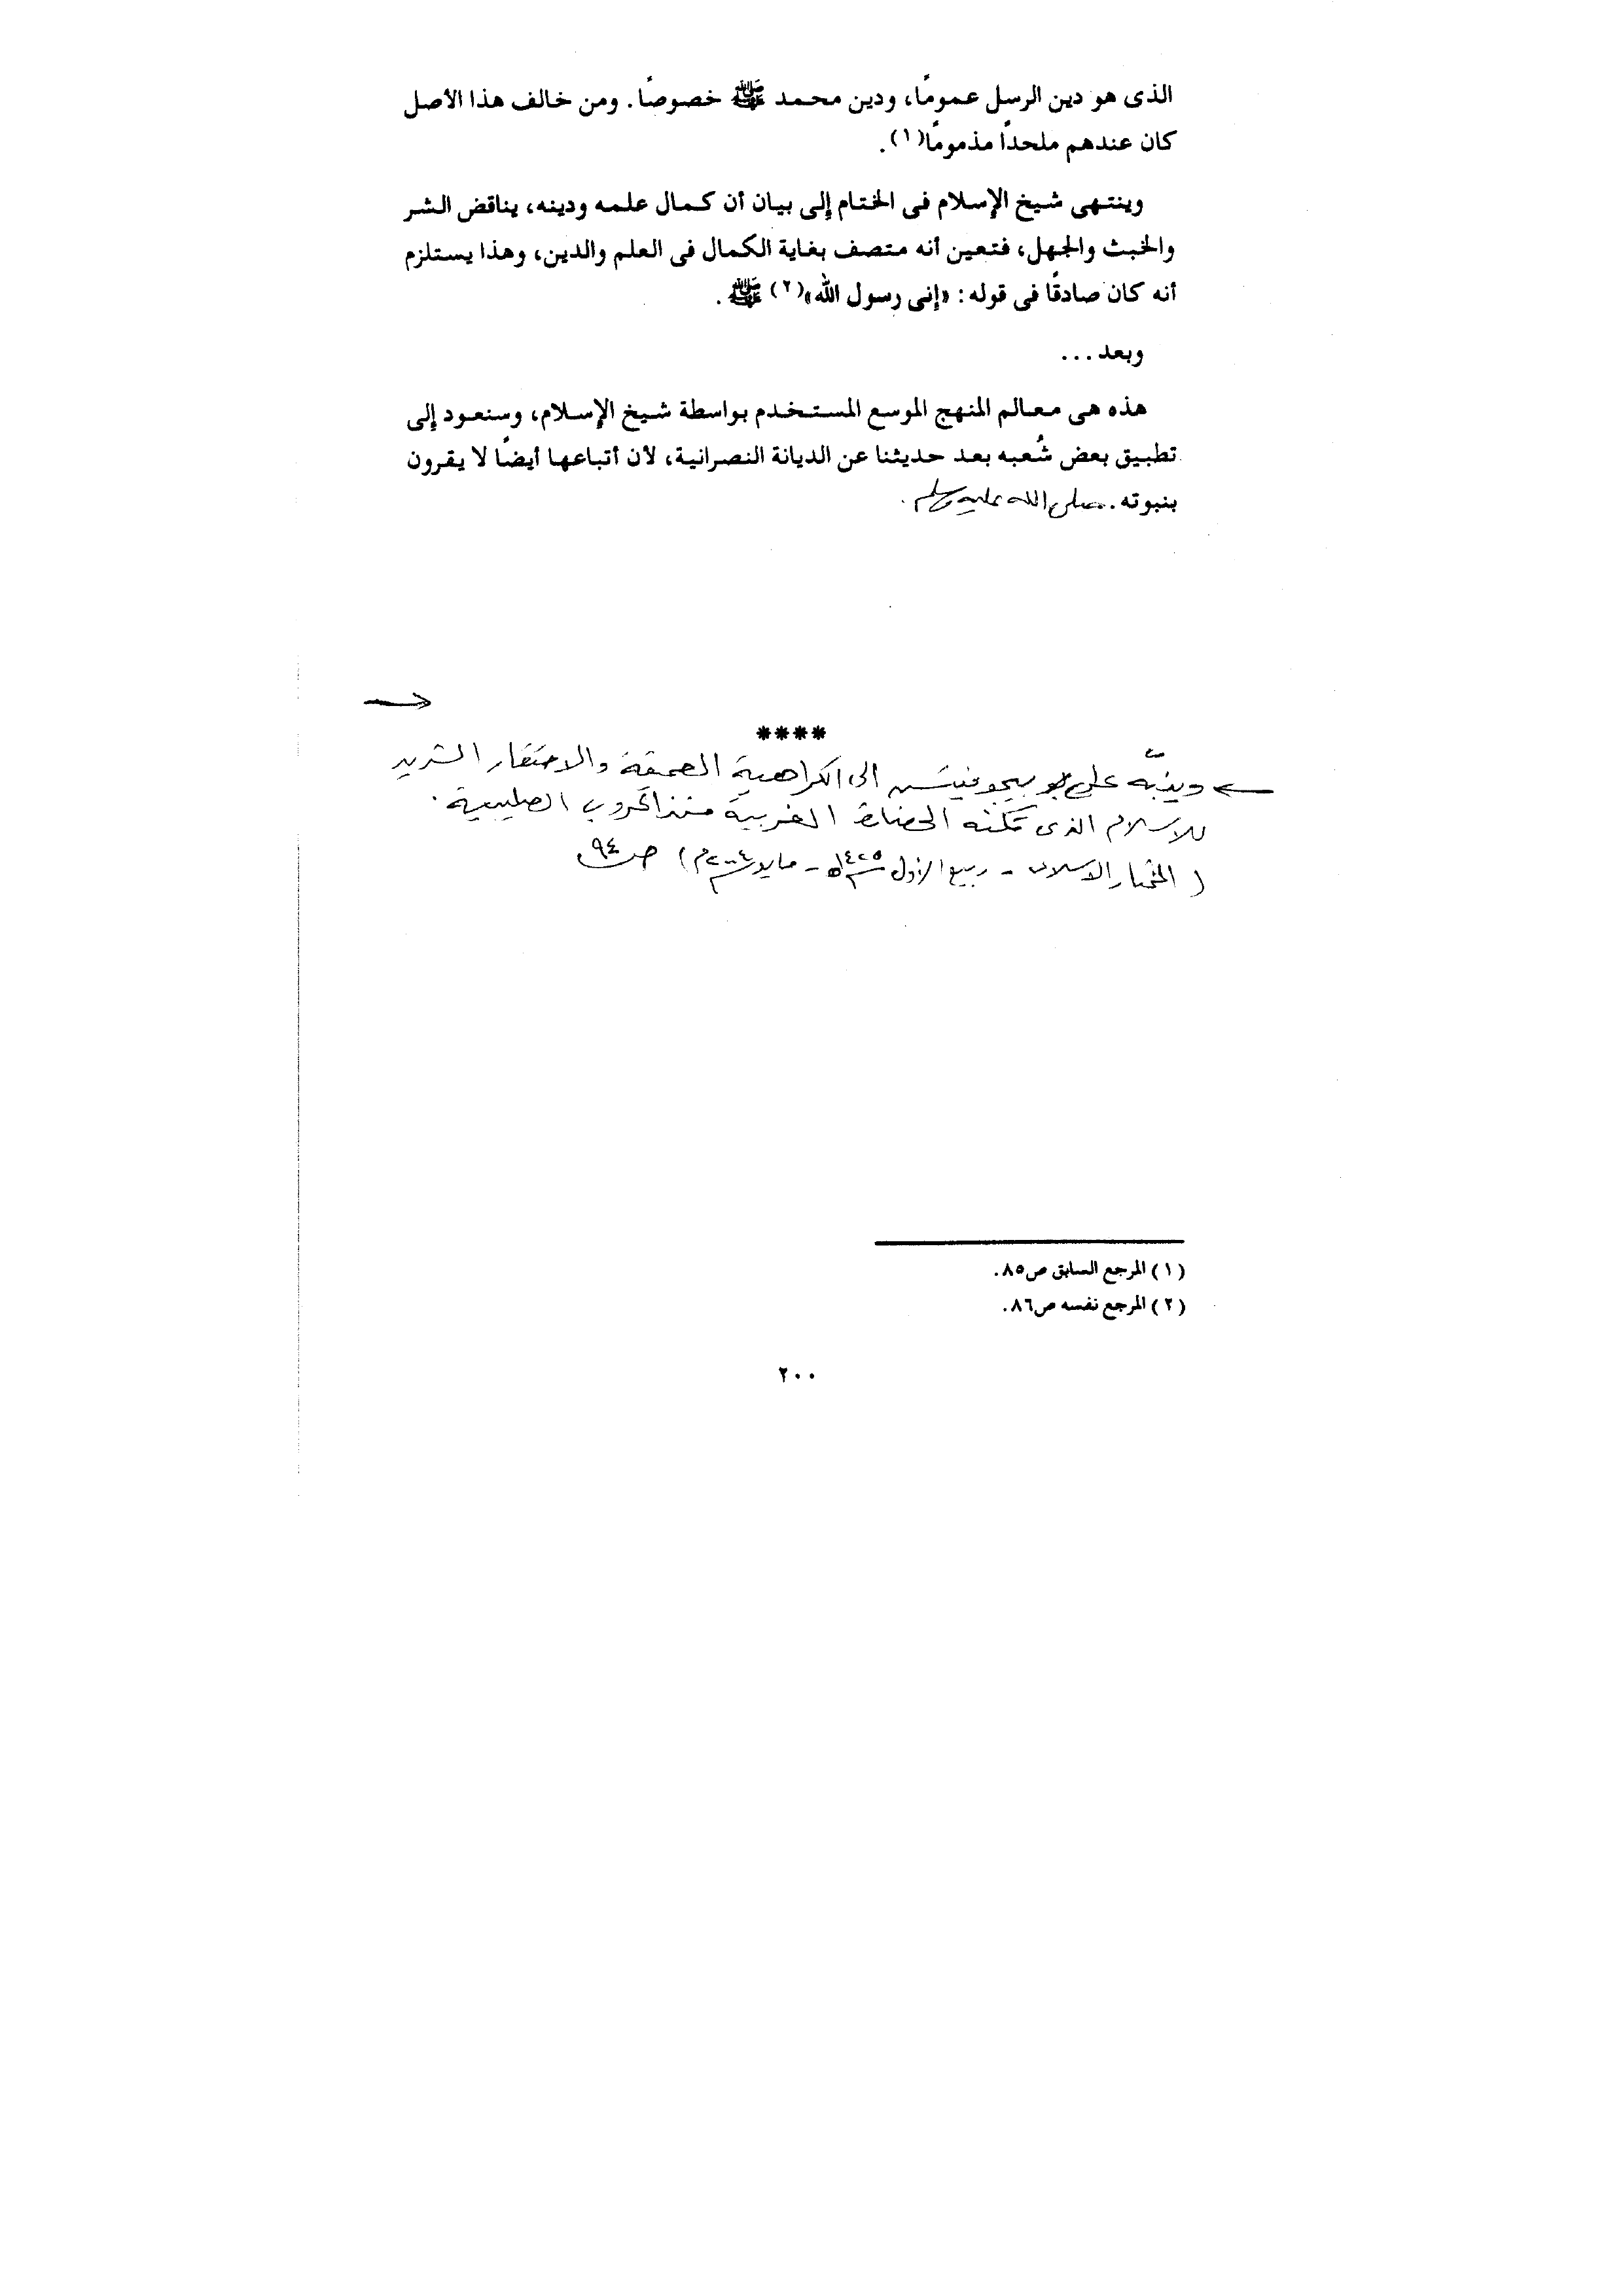 الذى هو دين الرسل عمومًا، ودين محمد ﷺ خصوصًا. ومن خالف هذا الأصل
كان عندهم ملحدًا مذمومًا(١).
وينتهى شيخ الإسلام فى الختام إلى بيان أن كمال علمه ودينه، يناقض الشر
والخبث والجهل، فتعين أنه متصف بغاية الكمال فى العلم والدين، وهذا يستلزم
أنه كان صادقًا فى قوله: «إنى رسول الله»(٢) ﷺ.
وبعد...
هذه هى معالم المنهج الموسع المستخدم بواسطة شيخ الإسلام، وسنعود إلى
تطبيق بعض شُعبه بعد حديثنا عن الديانة النصرانية، لأن أتباعها أيضًا لا يقرون
بنبوته. صلى الله عليه وسلم.
****
وينبّه على بيجوفيتش الى الكراهية العميقة والاحتقار الشديد
للاسلام الذى تكنّه الحضارة الغربية منذ الحروب الصليبية.
( المختار الاسلامى - ربيع الأول ١٤٢٥هـ - مايو ٢٠٠٤م) ص ٩٤
(١) المرجع السابق ص٨٥.
(٢) المرجع نفسه ص٨٦.
٢٠٠